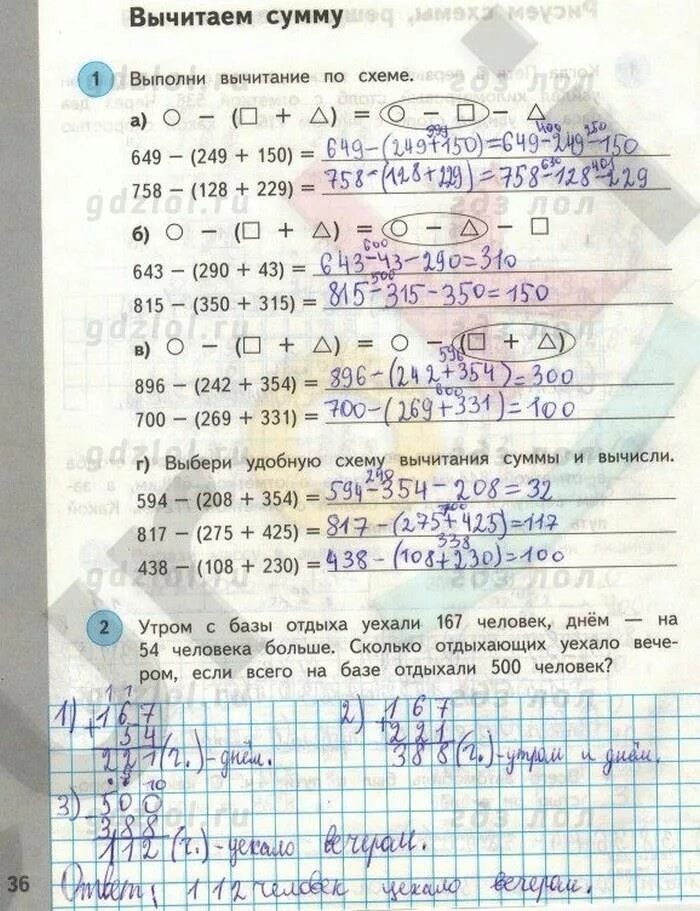 Вычитаем сумму
1 Выполни вычитание по схеме.
а) ○ − (□ + △) = ○ − □ − △
649 − (249 + 150) = 649−(249+150)=649−249−150
399 400 250
758 − (128 + 229) = 758−(128+229)=758−128−229
630 401
gdzlol.ru гдз лол
б) ○ − (□ + △) = ○ − △ − □
600
643 − (290 + 43) = 643−43−290=310
500
815 − (350 + 315) = 815−315−350=150
gdzlol.ru гдз лол
в) ○ − (□ + △) = ○ − (□ + △)
596
896 − (242 + 354) = 896−(242+354)=300
600
700 − (269 + 331) = 700−(269+331)=100
gdzlol.ru гдз лол
г) Выбери удобную схему вычитания суммы и вычисли.
240
594 − (208 + 354) = 594−354−208=32
700
817 − (275 + 425) = 817−(275+425)=117
338
438 − (108 + 230) = 438−(108+230)=100
gdzlol.ru гдз лол
2 Утром с базы отдыха уехали 167 человек, днём — на
54 человека больше. Сколько отдыхающих уехало вече-
ром, если всего на базе отдыхали 500 человек?
1 1
1) +167 2) +167
54 221
221(ч.)-днём. 388(ч.)-утром и днём.
10
3) −500
388
112(ч.)-уехало вечером.
36 Ответ: 112 человек уехало вечером.